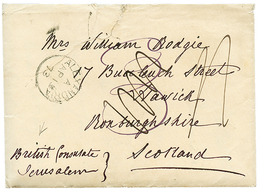 Mrs William Dodgie
17 Buccleuch Street
Hawick
Roxburghshire
Scotland
British Consulate
Jerusalem